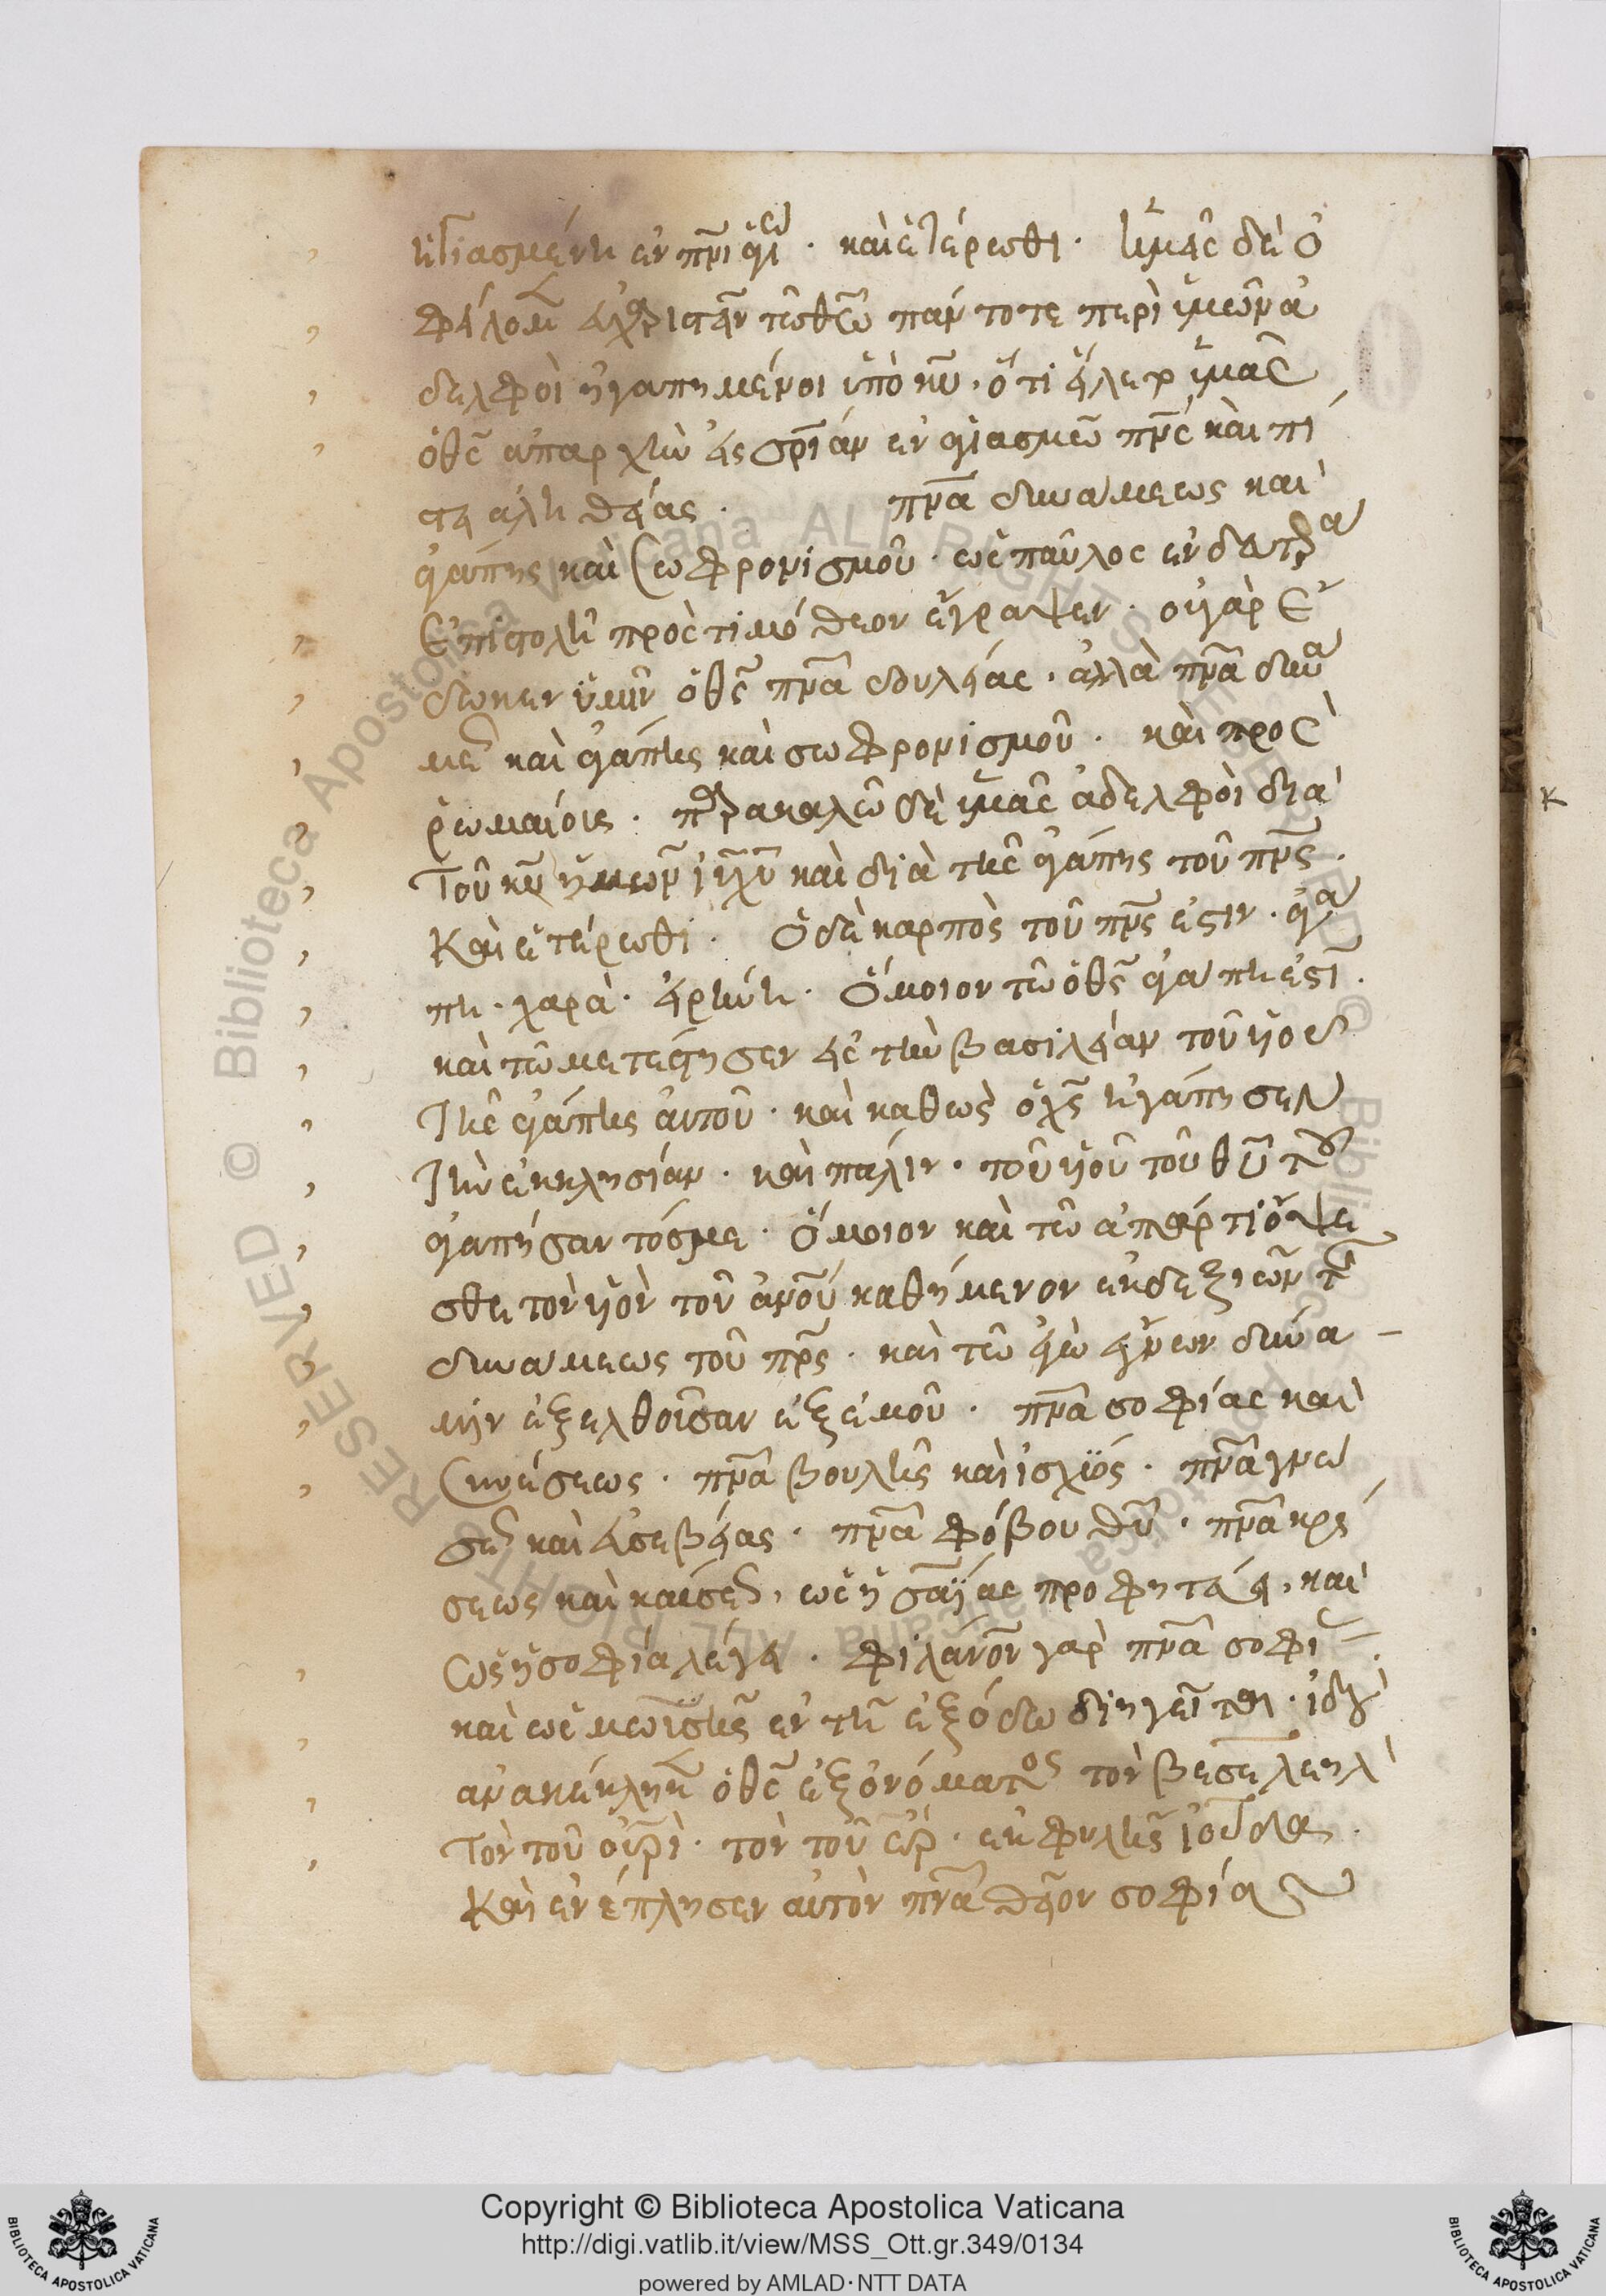 ἡγιασμένη ἐν πνι ἁγίω · καὶ ἑτέρωθι · ἡμεῖς δὲ ὀ
φείλομεν εὐχαριστεῖν τῶ θεῶ πάντοτε περὶ ὑμῶν ἀ
δελφοὶ ἠγαπημένοι ὑπὸ κυ · ὅτι εἵλετο ὑμᾶς
ὁ θς ἀπαρχὴν εἰς σρίαν ἐν ἁγιασμῶ πνς καὶ πί
στει ἀληθείας · πνα δυνάμεως καὶ
ἀγάπης καὶ σωφρονισμοῦ · ὡς παῦλος ἐν δευτέρα
ἐπιστολῆ πρὸς τιμόθεον ἔγραψεν · οὐ γὰρ ἔ
δωκεν ὑμῖν ὁ θς πνα δουλείας · ἀλλὰ πνα δυνά
με καὶ ἀγάπης καὶ σωφρονισμοῦ · καὶ πρὸς
ῥωμαίοις · παρακαλῶ δὲ ὑμᾶς ἀδελφοὶ διὰ
τοῦ κυ ἡμῶν ιυ χυ καὶ διὰ τῆς ἀγάπης τοῦ πνς ·
καὶ ἑτέρωθι · ὁ δὲ καρπὸς τοῦ πνς ἐστιν · ἀγά
πη · χαρὰ · εἰρήνη · ὅμοιον τῶ ὁ θς ἀγάπη ἐστί ·
καὶ τῶ μετέστησεν εἰς τὴν βασιλείαν τοῦ υἱοῦ
τῆς ἀγάπης αὐτοῦ · καὶ καθὼς ὁ χς ἠγάπησεν
τὴν ἐκκλησίαν · καὶ πάλιν · τοῦ υἱοῦ τοῦ θυ τοῦ
ἀγαπήσαντός με · ὅμοιον καὶ τῶ ἀπάρτι ὄψε
σθε τὸν υἱὸν τοῦ ανου καθήμενον ἐκ δεξιῶν τῆς
δυνάμεως τοῦ πρς · καὶ τῶ ἐγὼ ἔγνων δύνα
μιν ἐξελθοῦσαν ἐξ ἐμοῦ · πνα σοφίας καὶ
συνέσεως · πνα βουλῆς καὶ ἰσχύος · πνα γνώ
σε καὶ εὐσεβείας · πνα φόβου θυ · πνα κρί
σεως καὶ καύσε · ὡς ἡσαΐας προφητεύει · καὶ
ὡς ἡ σοφία λέγει · φιλάνον γὰρ πνα σοφί
καὶ ὡς μωϋσῆς ἐν τῆ ἐξόδω διηγεῖται · ἰδοὺ
ἀνακέκληκεν ὁ θς ἐξ ὀνόματος τὸν βεσελεὴλ
τὸν τοῦ οὐρὶ · τὸν τοῦ ὢρ · ἐκ φυλῆς ἰούδα ·
καὶ ἐνέπλησεν αὐτὸν πνα θεῖον σοφίας
κ
Copyright © Biblioteca Apostolica Vaticana
http://digi.vatlib.it/view/MSS_Ott.gr.349/0134
powered by AMLAD·NTT DATA
BIBLIOTECA APOSTOLICA VATICANA
BIBLIOTECA APOSTOLICA VATICANA